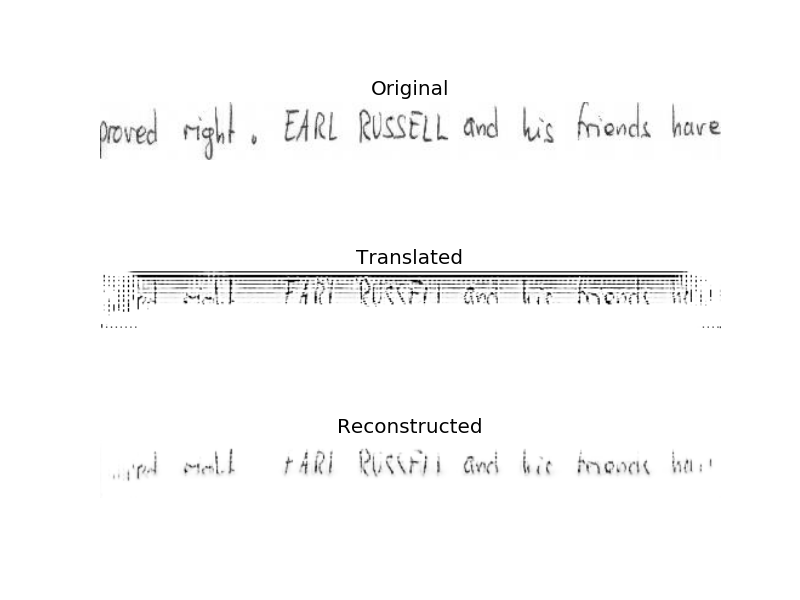 Original
proved right . EARL RUSSELL and his friends have
Translated
EARL RUSSELL and his friends
Reconstructed
EARL RUSSELL and his friends